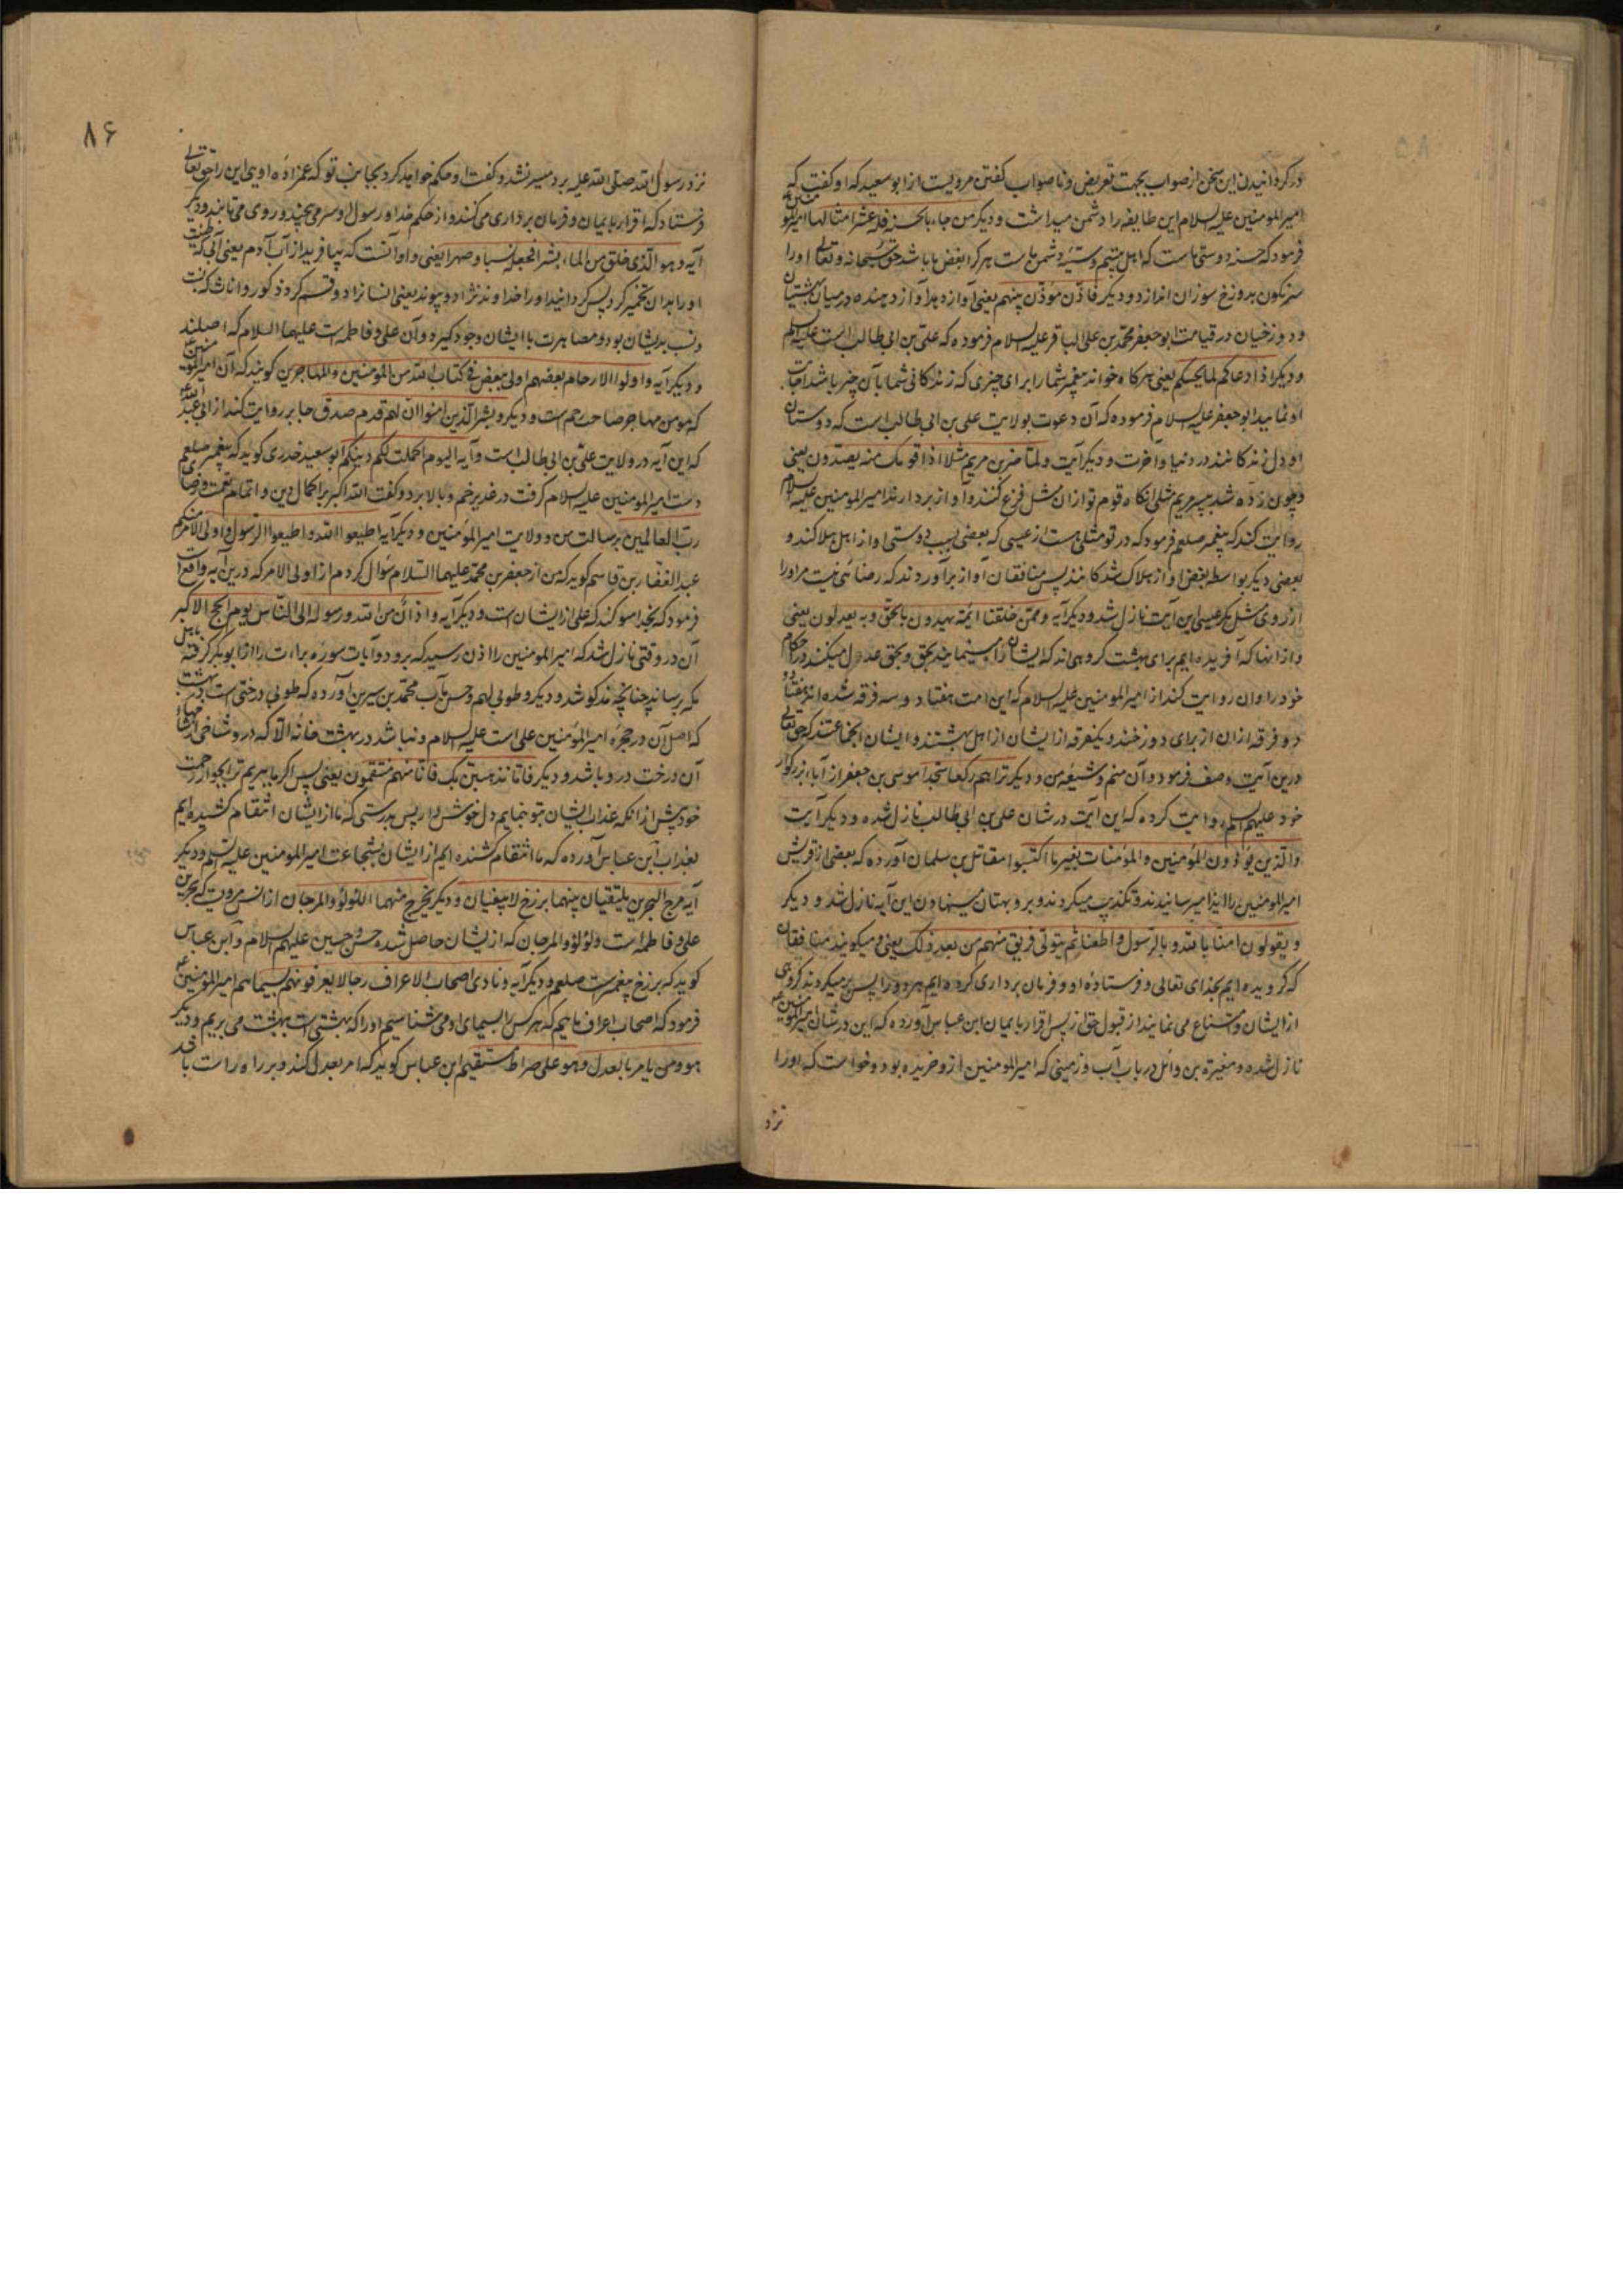 در کردانیدن این سخن از صواب بجهت تعریض و ناصواب کفتن مرویست از ابو سعید که او کفت که
امیرالمومنین علیه السلام این طایفه را دشمن میداشت و دیکر من جاء بالحسنه فله عشر امثالها امیرالمومنین
فرمود که حسنه دوستی ماست که اهل بیتیم و سیئه دشمنی ماست هر که را بغض ما باشد حق سبحانه و تعالی او را
سرنکون بدوزخ سوزان اندازد و دیکر فاذن موذن بینهم یعنی آواز دهد آواز دهنده در میان بهشتیان
و دوزخیان در قیامت ابو جعفر محمد بن علی الباقر علیه السلام فرموده که علی بن ابی طالب است علیه السلم
و دیکر اذا دعاکم لما یحییکم یعنی هرکاه خواند پیغمبر شما را برای چیزی که زندکانی شما بآن چیز باشد اجابت
او نمایید ابو جعفر علیه السلام فرموده که آن دعوت بولایت علی بن ابی طالب است که دوستان
او دل زندکانند در دنیا و آخرت و دیکر آیت و لما ضرب مریم مثلا اذا قومک منه یصدون یعنی
و چون زده شد پسر مریم مثلی انکاه قوم تو ازان مثل فزع کنند و آواز بردارند امیرالمومنین علیه السلام
روایت کند که پیغمبر صلعم فرمود که در تو مثلی هست از عیسی که بعضی بسبب دوستی او از اهل هلاکند و
بعضی دیکر بواسطه بغض او از هلاک شدکانند پس منافقان آواز برآوردند که رضائی نیست مر او را
از روی مثل مکر عیسی این آیت نازل شد و دیکر آیه و ممن خلقنا ائمه یهدون بالحق و به یعدلون یعنی
و از انها که آفریده ایم برای بهشت کروهی اند که ایشان راه مینمایند بحق و بحق عدول میکنند در احکام
خود راوان روایت کند از امیرالمومنین علیه السلام که این امت هفتاد و سه فرقه شده اند هفتاد
و دو فرقه ازان از برای دوزخند و یکفرقه از ایشان از اهل بهشتند و ایشان انجماعتند که حق تعالی
درین آیت وصف فرموده و آن منم و شیعه من و دیکر تراهم رکعا سجدا موسی بن جعفر از آباء بزرکوار
خود علیهم السلم روایت کرده که این آیت در شان علی بن ابی طالب نازل شده و دیکر آیت
والذین یؤذون المؤمنین و المؤمنات بغیر ما اکتسبوا مقاتل بن سلمان آورده که بعضی از قریش
امیرالمومنین را ایذا میرسانیدند و تکذیب میکردند و برو بهتان مینهادند این آیه نازل شد و دیکر
و یقولون امنا بالله و بالرسول و اطعنا ثم یتولی فریق منهم من بعد ذلک یعنی و میکویند منافقان
که کرویده ایم بخدای تعالی و فرستاده او و فرمان برداری کرده ایم هر دو را پس برمیکردند کروهی
از ایشان و امتناع می نمایند از قبول حق از پس اقرار بایمان ابن عباس آورده که این در شان امیرالمومنین
نازل شده و مغیره بن وائل در باب آب و زمینی که امیرالمومنین ازو خریده بود و خواست که او را
نزد
۸۶
نزد رسول الله صلی الله علیه برد میسر نشد و کفت او حکم خواهد کرد بجانب تو که عمزاده اویی این را حق تعالی
فرستاد که اقرار بایمان و فرمان برداری می کنند و از حکم خدا و رسول او سر می پیچند و روی می تابند و دیکر
آیه و هو الذی خلق من الماء بشرا فجعله نسبا و صهرا یعنی و او آنست که بیافرید از آب آدم یعنی آبی که طینت
او را بدان تخمیر کرد پس کردانید او را خداوند نژاد و پیوند یعنی انسانرا دو قسم کرد ذکور و اناث که نسبت
و نسب بدیشان بود و مصاهرت با ایشان وجود کیرد و آن علی و فاطمه است علیهما السلام که اصلند
و دیکر آیه و اولوا الارحام بعضهم اولی ببعض فی کتاب الله من المومنین و المهاجرین کویند که آن امیرالمومنین
که مومن مهاجر صاحب رحم است و دیکر و بشر الذین امنوا ان لهم قدم صدق جابر روایت کند از ابی عبدالله
که این آیه در ولایت علی بن ابی طالب است و آیه الیوم اکملت لکم دینکم ابو سعید خدری کوید که پیغمبر صلعم
دست امیرالمومنین علیه السلام کرفت در غدیر خم و بالا برد و کفت الله اکبر بر اکمال دین و اتمام نعمت و رضای
رب العالمین برسالت من و ولایت امیرالمومنین و دیکر آیه اطیعوا الله و اطیعوا الرسول و اولی الامر منکم
عبدالغفار بن قاسم کوید که من از جعفر بن محمد علیهما السلام سؤال کردم از اولی الامر که درین آیه واقع است
فرمود که بخدا سوکند که علی از ایشان است و دیکر آیه و اذان من الله و رسوله الی الناس یوم الحج الاکبر
آن در وقتی نازل شد که امیرالمومنین را اذن رسید که برود و آیات سوره براءت را از ابوبکر کرفته باهل
مکه رساند چنانچه مذکور شد و دیکر و طوبی لهم و حسن مآب محمد بن سیرین آورده که طوبی درختی است در بهشت
که اصل آن در حجره امیرالمؤمنین علی است علیه السلام و نباشد در بهشت خانه الا که درو شاخی از شاخهای
آن درخت درو باشد و دیکر فاما نذهبن بک فانا منهم منتقمون یعنی پس اکر ما ببریم ترا بجوار رحمت
خود پیش از انکه عذاب ایشان بتو بنمایم دل خوش دار پس بدرستی که ما از ایشان انتقام کشیده ایم
بعذاب ابن عباس آورده که ما انتقام کشنده ایم از ایشان بشجاعت امیرالمومنین علیه السلم و دیکر
آیه مرج البحرین یلتقیان بینهما برزخ لا یبغیان و دیکر یخرج منهما اللؤلؤ و المرجان از انس مرویست که بحرین
علی و فاطمه است و لؤلؤ و المرجان که از یشان حاصل شده حسن و حسین علیهم السلام و ابن عباس
کوید که برزخ پیغمبرست صلعم و دیکر آیه و نادی اصحاب الاعراف رجالا یعرفونهم بسیماهم امیرالمومنین
فرمود که اصحاب اعراف ماییم که هر کس را بسیمای او می شناسیم او را که بهشتی است ببهشت می بریم و دیکر
هو و من یامر بالعدل و هو علی صراط مستقیم ابن عباس کوید که امر بعدل کند و بر راه راست باشد